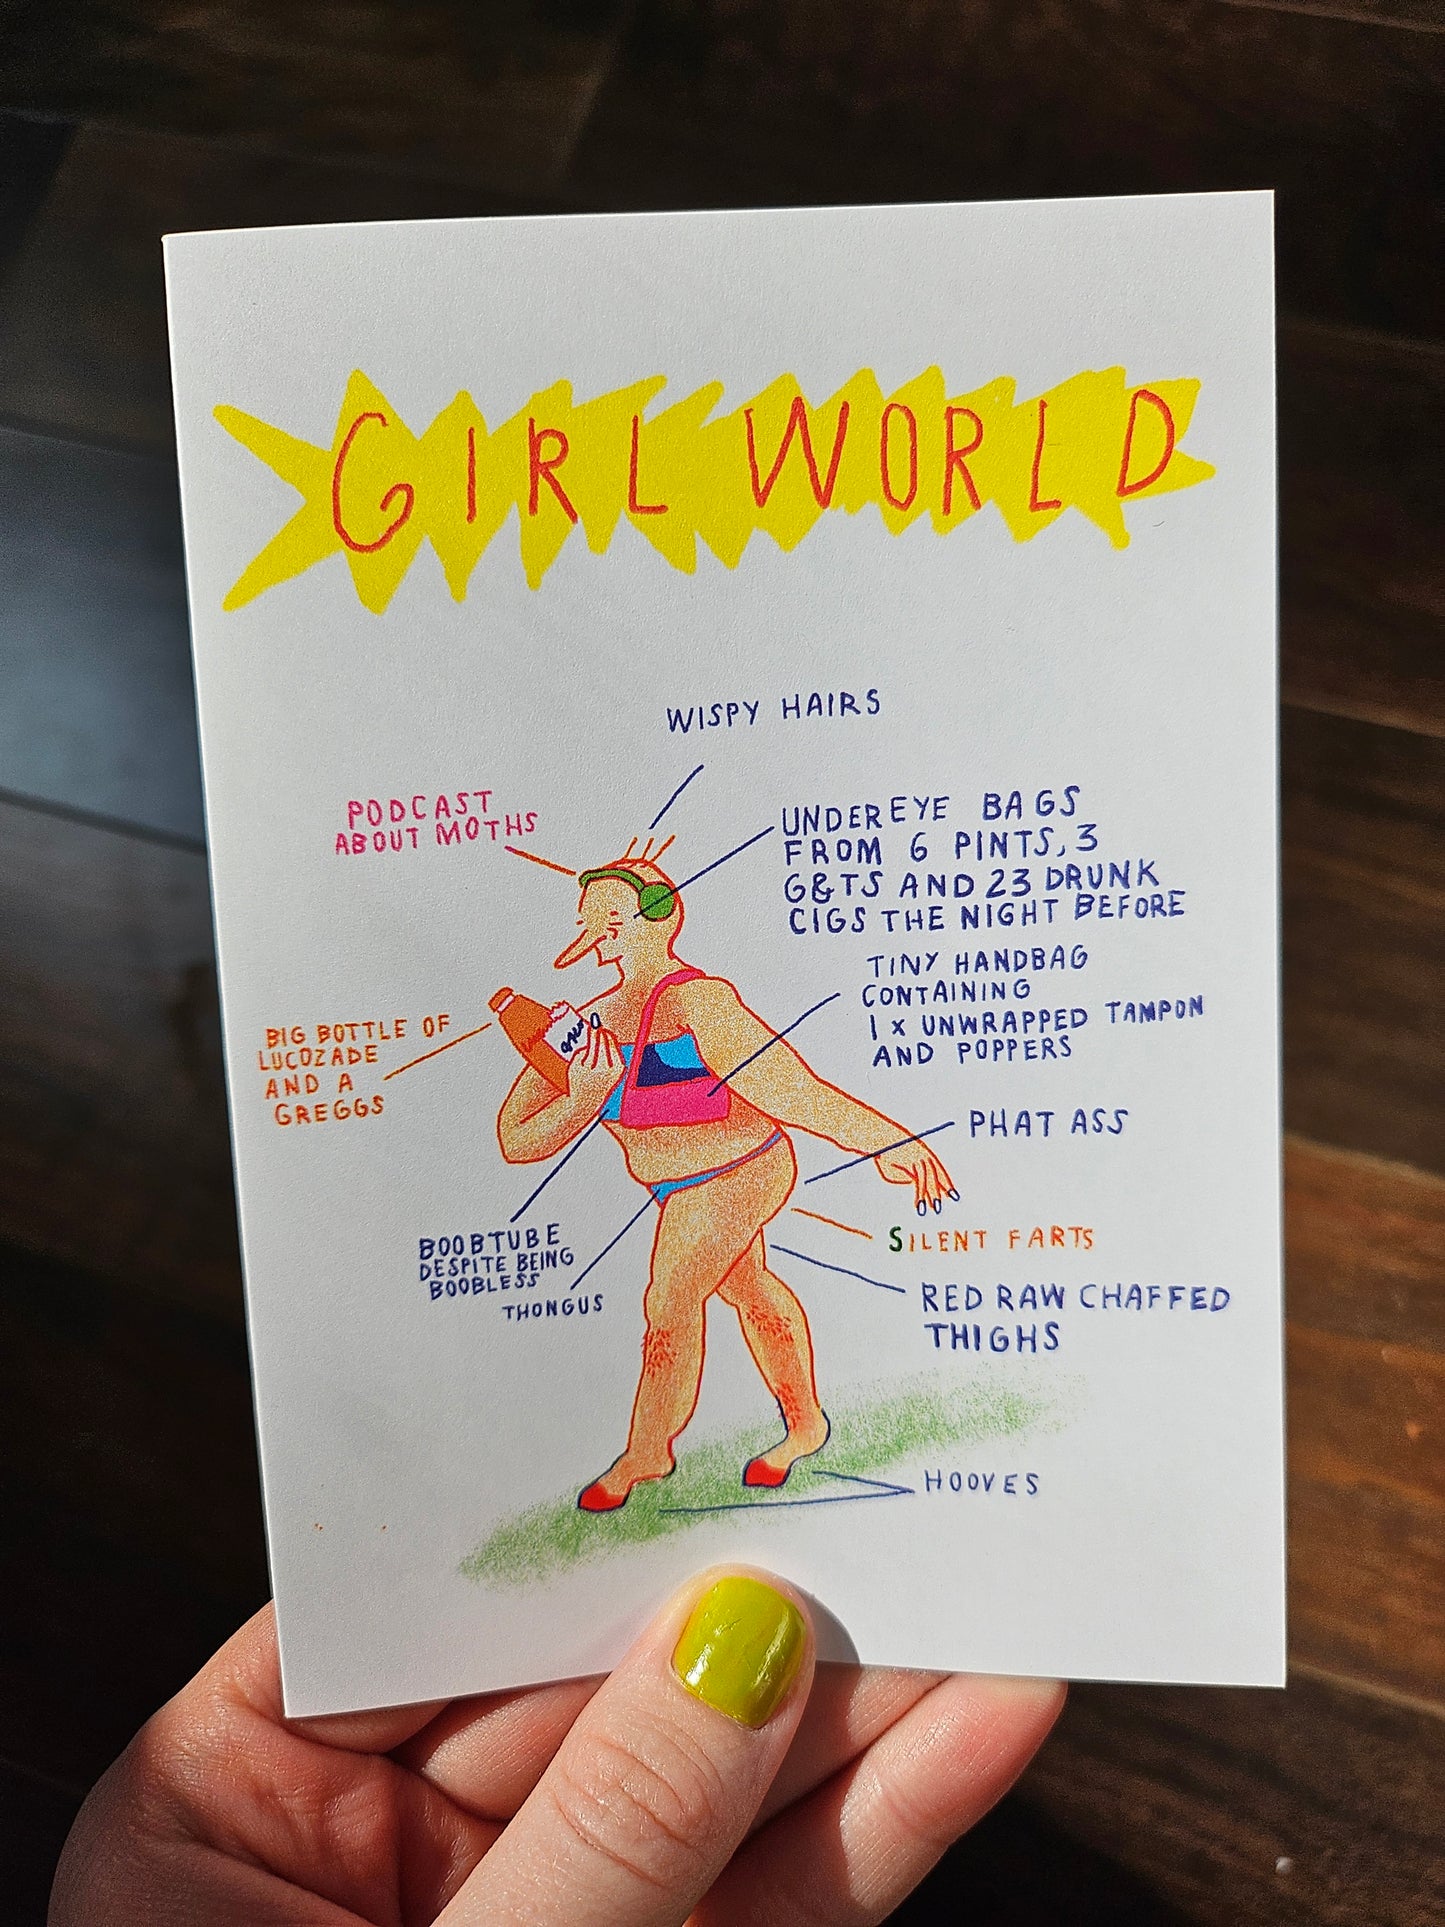 GIRL WORLD
WISPY HAIRS
PODCAST
ABOUT MOTHS
UNDEREYE BAGS
FROM 6 PINTS, 3
G&TS AND 23 DRUNK
CIGS THE NIGHT BEFORE
TINY HANDBAG
CONTAINING
1 X UNWRAPPED TAMPON
AND POPPERS
BIG BOTTLE OF
LUCOZADE
AND A
GREGGS
PHAT ASS
SILENT FARTS
BOOBTUBE
DESPITE BEING
BOOBLESS
THONGUS
RED RAW CHAFFED
THIGHS
HOOVES